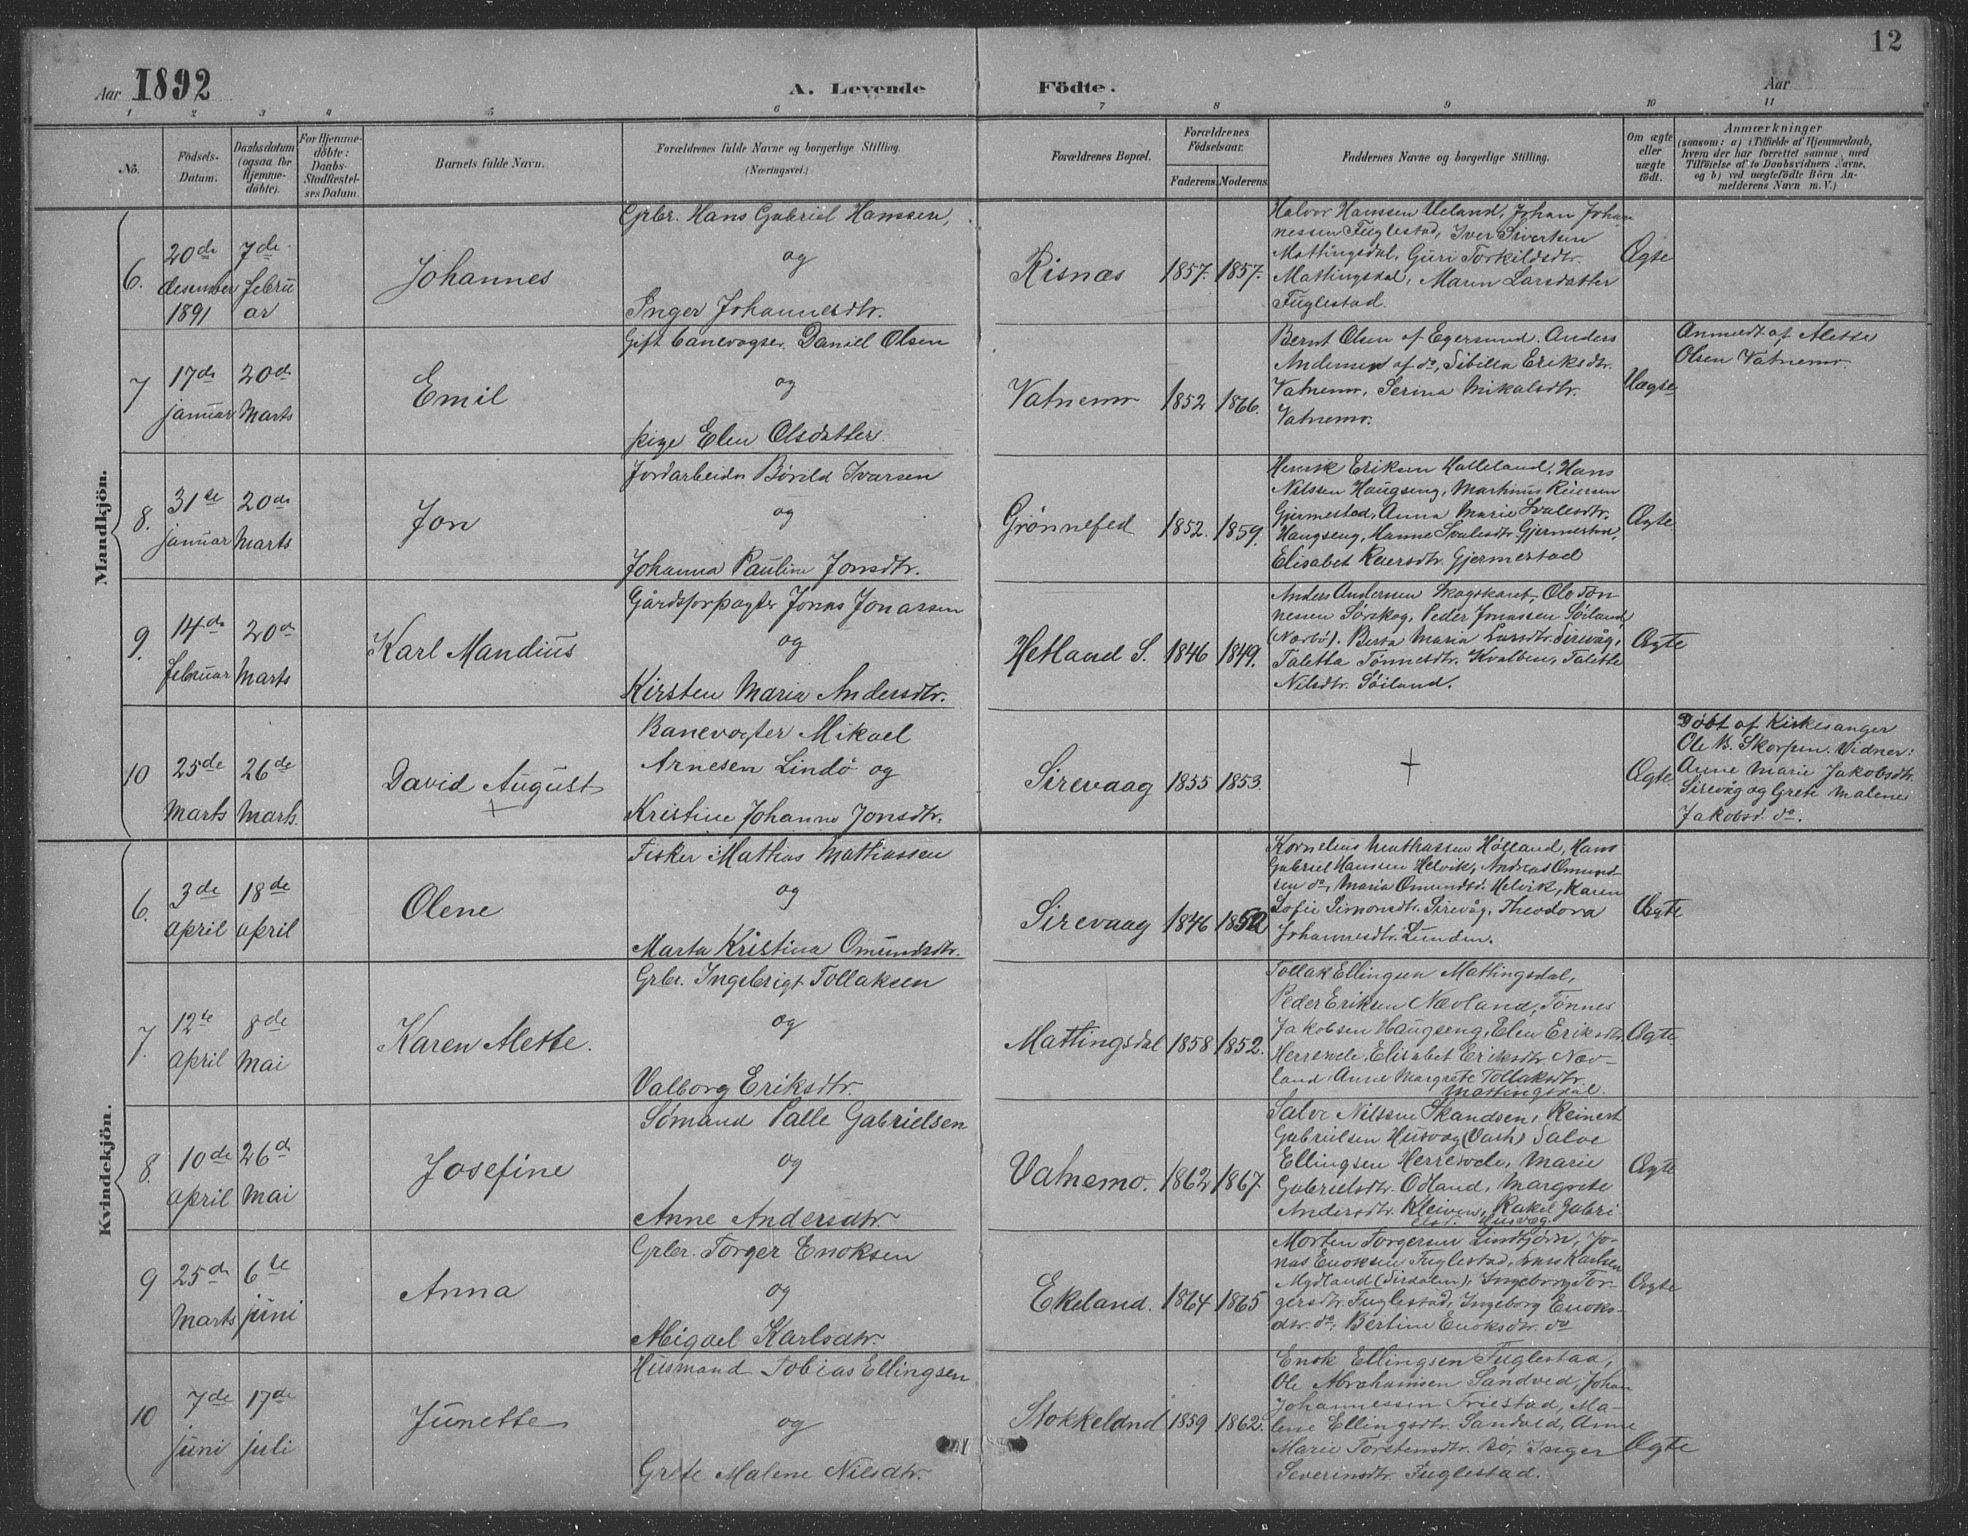 12
Aar 1892 A. Levende Födte. Aar
1 2 3 4 5 6 7 8 9 10 11
No.
Födsels-
Datum.
Daabsdatum
(ogsaa for
Hjemme-
döbte).
For Hjemme-
döbte:
Daabs-
Stadfæstel-
ses Datum.
Barnets fulde Navn.
Forældrenes fulde Navne og borgerlige Stilling.
(Næringsvei.)
Forældrenes Bopæl.
Forældrenes
Födselsaar.
Faderens. Moderens.
Faddernes Navne og borgerlige Stilling.
Om ægte
eller
uægte
födt.
Anmærkninger
(saasom: a) i Tilfælde af Hjemmedaab,
hvem der har forrettet samme, med
Tilföielse af to Daabsvidners Navne,
og b) ved uægtefödte Börn An-
melderens Navn m. V.)
Mandkjön.
6.
20de
desember
1891
7de
febru
ar
Johannes
Grbr. Hans Gabriel Hanssen,
og
Inger Johannesdtr.
Risnæs
1857. 1857.
Halvor Hanssen Ueland, Johan Johan
nessen Fuglestad, Iver Sivertsen
Mattingsdal, Guri Torkildsdtr.
Mattingsdal, Maren Larsdatter
Fuglestad.
Ægte
7
17de
januar
20de
Marts
Emil
Gift banevogter Daniel Olsen
og
pige Elen Olsdatter.
Vatnemo
1852 1866.
Bernt Olsen af Egersund. Anders
Andersen af do, Sibilla Eriksdtr.
Vatnemo, Serina Mikalsdtr.
Vatnemo.
Uægte
Anmeldt af Alette
Olsen Vatnemo.
8.
31te
januar
20de
Marts
Jon
Jordarbeider Børild Ivarsen
og
Johanna Pauline Jonsdtr.
Grønnefed
1852. 1859.
Henrik Eriksen Halleland, Hans
Nilssen Haugseng, Martinus Reiersen
Gjermestad, Anna Marie Svalesdtr.
Haugseng, Hanne Svalesdtr Gjermestad,
Elisabet Reiersdtr. Gjermestad
Ægte
9.
14de
februar
20de
Marts
Karl Mandius
Gårdsforpagter Jonas Jonassen
og
Kirsten Maria Andersdtr.
Hetland S.
1846 1849.
Anders Andersen Skogskaret, Ole Tøn-
nessen Sørskog, Peder Jonassen Søiland
(Nærbø). Berta Maria Larsdtr. Sirevåg,
Taletta Tønnesdtr. Kvalben, Talette
Nilsdtr. Søiland.
Ægte
10
25de
Marts
26de
Marts.
David August
+
Banevogter Mikael
Arnesen Lindø og
Kristine Johanne Jonsdtr.
Sirevaag
1855 1853.
+
Ægte
Døbt af Kirkesanger
Ole B. Skorpen. Vidner:
Anne Marie Jakobsdtr.
Sirevåg og Grete Malene
Jakobsd. do.
Kvindekjön.
6.
3de
april
18de
april
Olene
Fisker Mathias Mathiassen
og
Marta Kristina Omundsdtr.
Sirevaag
1846 1852
Kornelius Mathassen Hølland, Hans
Gabriel Hansen Helvik, Andreas Omund-
sen do, Maria Omundsd. Helvik, Karen
Sofie Simonsdtr. Sirevåg, Theodora
Johannesdtr. Lunden.
Ægte
7.
12te
april
8de
Mai
Karen Alette.
Grbr. Ingebrigt Tollaksen
og
Valborg Eriksdtr.
Mattingsdal
1858 1852.
Tollak Ellingsen Mattingsdal,
Peder Eriksen Nævland, Tønnes
Jakobsen Haugseng, Elen Eriksdtr.
Herrevele, Elisabet Eriksdtr. Næv-
land, Anne Margrete Tollaksdtr.
Mattingsdal.
Ægte
8.
10de
april
26d
Mai
Josefine
Sømand Palle Gabrielsen
og
Anne Andersdtr.
Vatnemo.
1862 1867.
Salve Nilssen Skandsen, Reinert
Gabrielsen Husvåg Salve
Ellingsen Herrevele, Marie
Gabrielsdtr. Odland, Margrete
Andersdtr. Kleiven, Rakel Gabri
elsd. Husvåg.
Ægte
9
25de
Marts
6te
juni
Anna
Grbr. Torger Enoksen
og
Migael Karlsdtr.
Ekeland.
1864 1865
Morten Torgersen Lindtjørn, Jo-
nas Enoksen Fuglestad, Karlsen
Mydland (Sirdalen), Ingeborg Tor-
gersdtr. Fuglestad, Ingeborg Enoks-
dtr. do, Bertine Enoksdtr. do
Ægte
10
7de
juni
17de
juli
Junette
Husmand Tobias Ellingsen
og
Grete Malene Nilsdtr.
Stokkeland
1859 1862.
Enok Ellingsen Fuglestad,
Ole Abrahamsen Sandved, Johan
Johannessen Friestad, Ma-
lene Ellingsdtr. Sandved, Anne
Marie Torstensdtr. Bø, Inger
Severinsdtr. Fuglestad.
Ægte